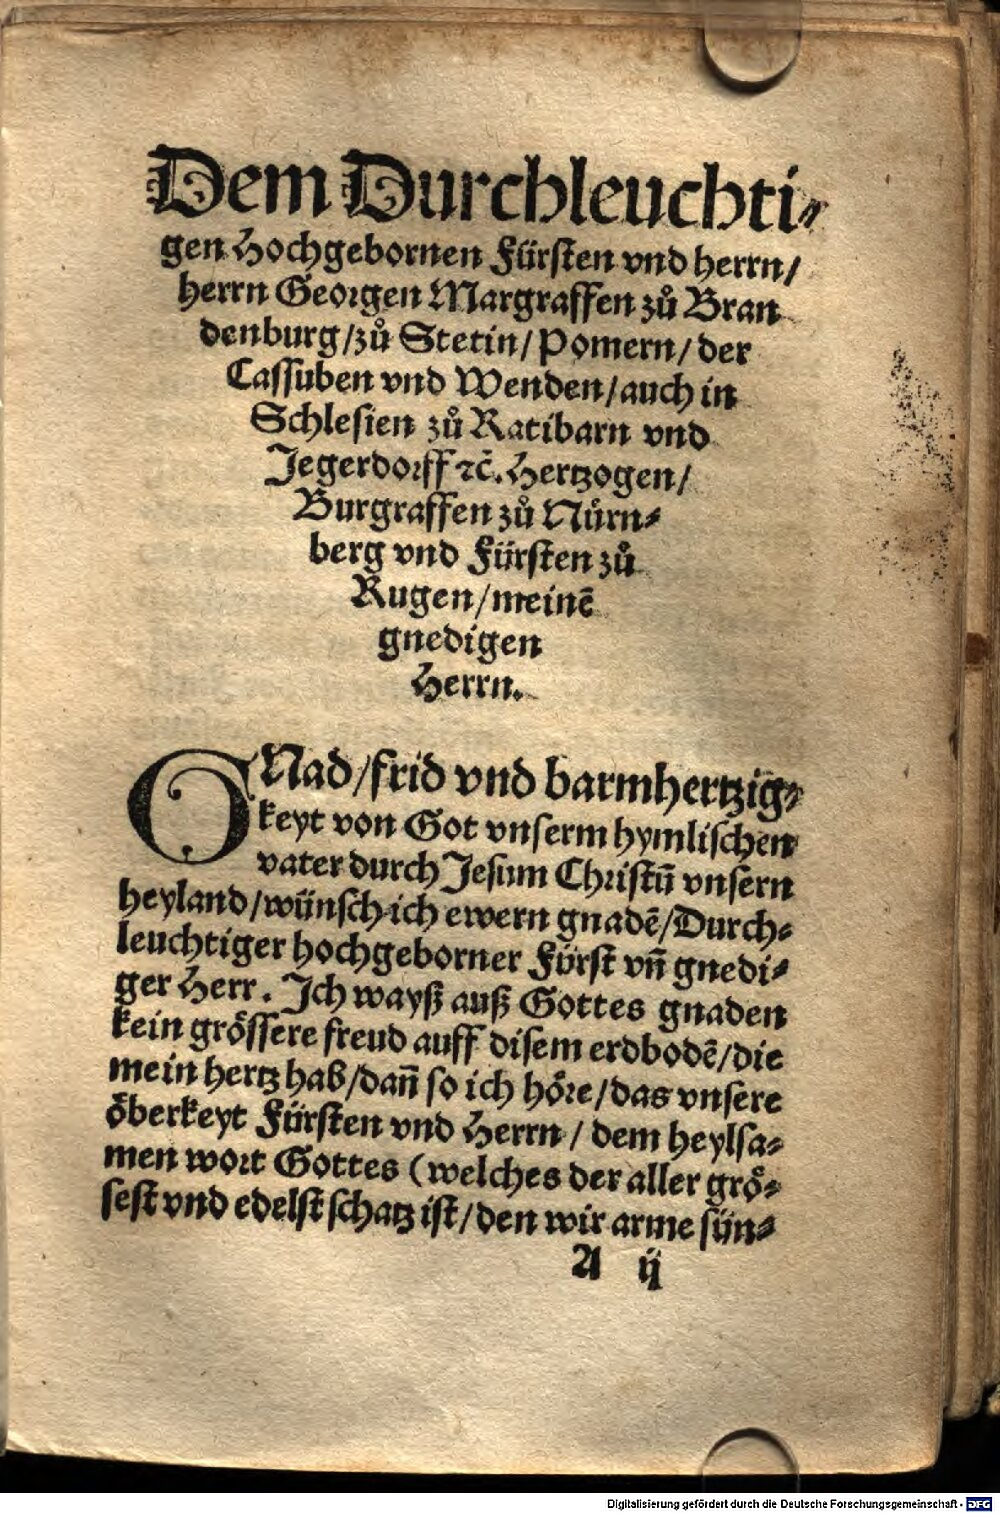 Dem Durchleuchti⸗
gen Hochgebornen Fürsten vnd herrn/
herrn Georgen Margraffen zů Bran
denburg/zů Stetin/Pomern/der
Cassuben vnd Wenden/auch in
Schlesien zů Ratibarn vnd
Jegerdorff ꝛc̄. Hertzogen/
Burgraffen zů Nürn⸗
berg vnd Fürsten zů
Rugen/meinē
gnedigen
Herrn.
GNad/frid vnd barmhertzig⸗
keyt von Got vnserm hymlischen
vater durch Jesum Christū vnsern
heyland/wünsch ich ewern gnadē/Durch⸗
leuchtiger hochgeborner Fürst vn̄ gnedi⸗
ger Herr. Ich wayß auß Gottes gnaden
kein grössere freud auff disem erdbodē/die
mein hertz hab/dan̄ so ich höre/das vnsere
öberkeyt Fürsten vnd Herrn/dem heylsa⸗
men wort Gottes (welches der aller grö⸗
sest vnd edelst schatz ist/den wir arme sün⸗
A ij
Digitalisierung gefördert durch die Deutsche Forschungsgemeinschaft - DFG